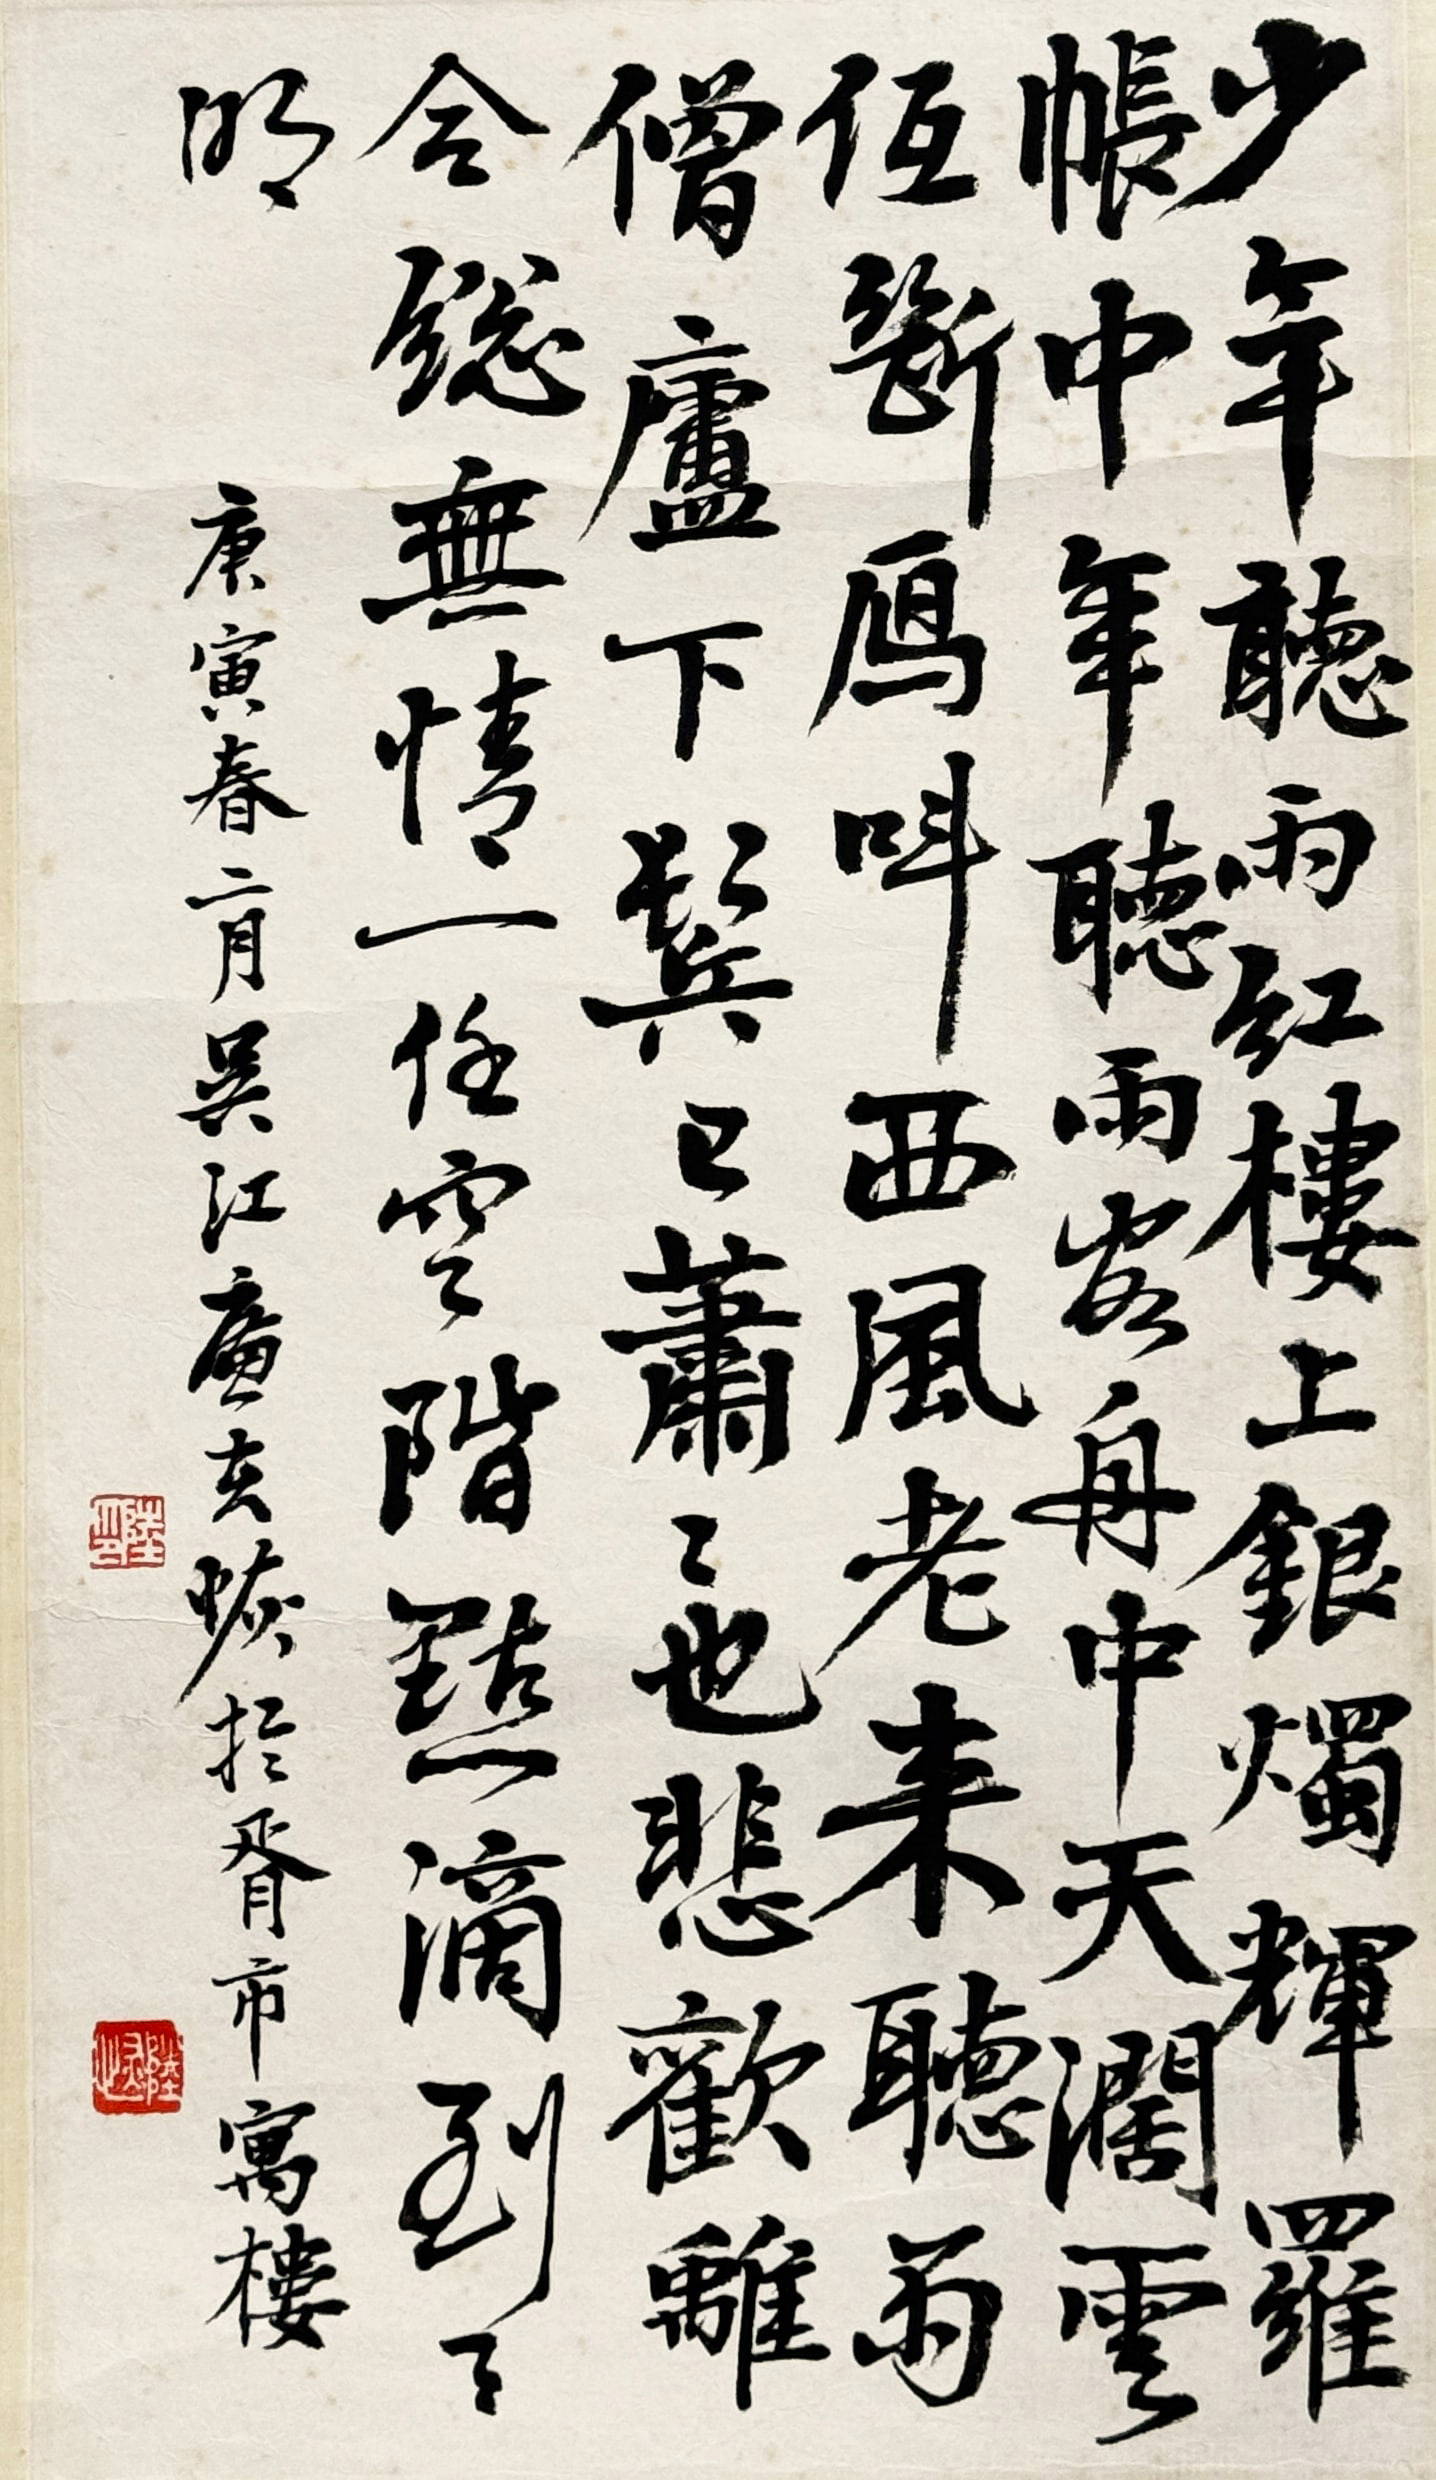 少年聽雨紅樓上銀燭輝羅
帳中年聽雨客舟中天濶雲
低斷鴈叫西風老来聽雨
僧廬下鬢已蕭〻也悲歡離
合總無情一任空階點滴到天
明
庚寅春二月吳江廉夫恢於胥市寓樓